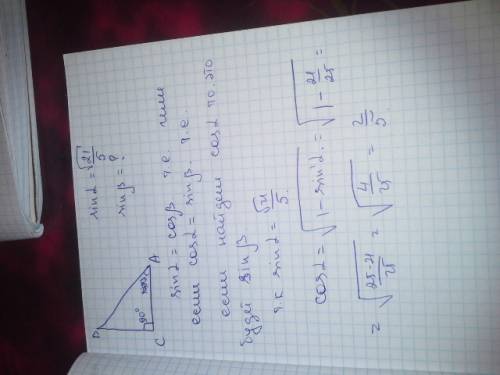 sin α = √21/5
sin β = ?
B
A
C
90°
sin α = cos β т.е. или
если cos α = sin β. т.е.
если найдем cos α то это
будет sin β
т.к sin α = √21/5.
cos α = √(1 - sin²α) = √(1 - 21/25) =
= √((25-21)/25) = √(4/25) = 2/5